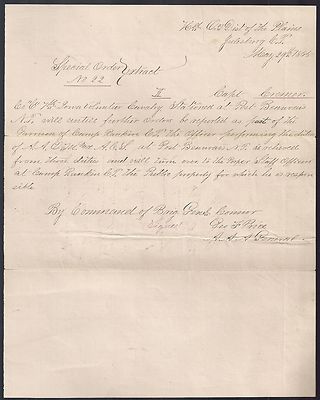 Hd Qrs Dist of the Plains
Julesburg C.T.
May 29th 1865
Special Orders Extract
No 22
II Capt
Co "C" 7th Iowa Cavalry Stationed at Post Beauvais
N.T. will until further Orders be reported as part of the
Garrison of Camp Rankin C.T. The Officer performing the duties
of A.A.Q.M. and A.C.S. at Post Beauvais N.T. is relieved
from those duties and will turn over to the Proper Staff Officers
at Camp Rankin C.T. the Public property for which he is respon
sible.
By Command of Brig Genl Connor
Signed Geo F Price
A. A. A. General